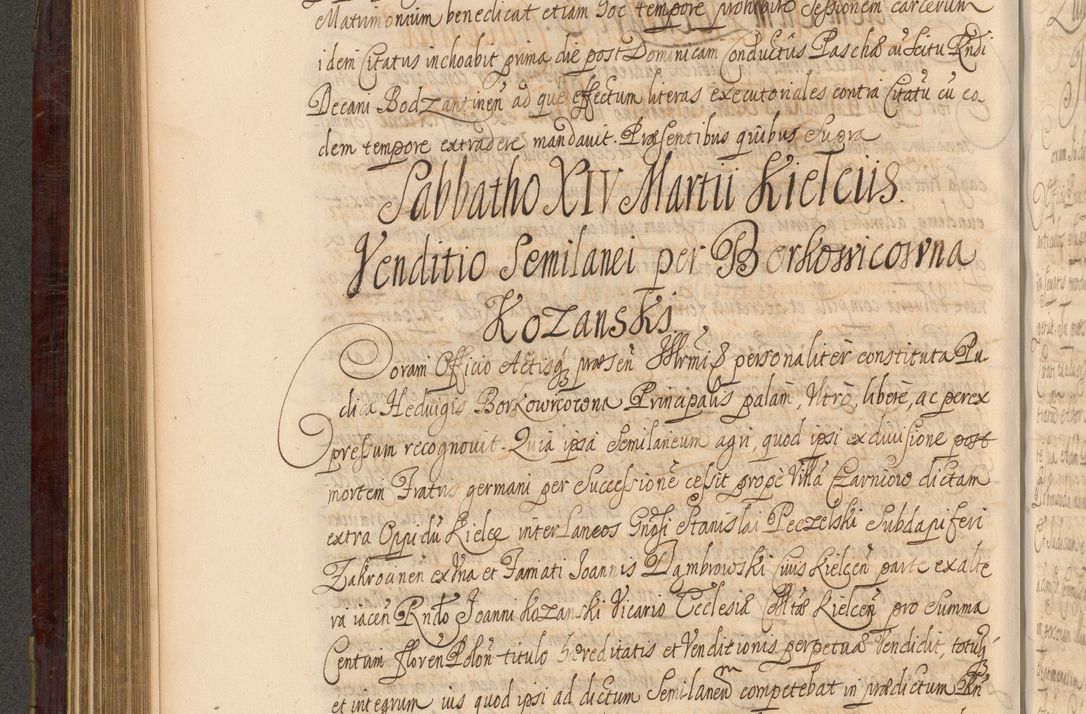 Matrimonium benedicat etiam hoc tempore prohibito sessionem carcerum
idem Citatus inchoabit prima die post Dominicam Conductus Paschæ ad scitu Rndi
Decani Bodzantinen̄ ad que effectum literas executoriales contra Citatū cū eo-
dem tempore extradere mandavit. Præsentibus quibus Supra
Sabbatho XIV Martii Kielciis.
Venditio Semilanei per Borkowicowna
Kozanski.
Coram Officio Actisq̨ præsen̄ personaliter constituta Pu-
dica Hedvigis Borkowicowna Principalis palam, Vtrò, liberè, ac perex
pressum recognovit. Quia ipsa Semilaneum agri, quod ipsi ex divisione post
mortem Fratris germani per Successionē cessit propè Villā Czarnow dictam
extra Oppidū Kielce inter Laneos Gnosi Stanislai Peczelski Subdapiferi
Zakrocinen ex Vna et Famati Joannis Dambrowski Civis Kielcen̄ parte ex alte
ra iacen̄ Rndo Joanni Kozanski Vicario Ecclesiæ Kielcen̄ pro Summa
Centum floren Polon̄ titulo hæreditatis et Venditionis perpetuæ Vendidit, totūq̨
et integrum ius quod ipsi ad dictum Semilaneūm competebat in prædictum Rn̄